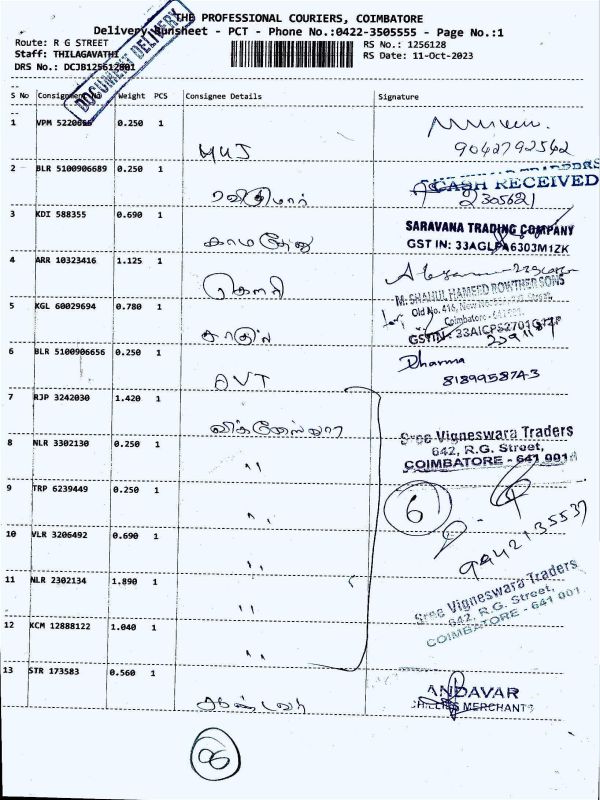 THE PROFESSIONAL COURIERS, COIMBATORE
Delivery Runsheet - PCT - Phone No.:0422-3505555 - Page No.:1
Route: R G STREET
RS No.: 1256128
Staff: THILAGAVATHI
RS Date: 11-Oct-2023
DRS No.: DCJB125612801
DOCUMENT DELIVERY
S No Consignment No Weight PCS Consignee Details Signature
1 VPM 0.250 1 MUJ
9042792542
2 BLR 5100906689 0.250 1 ரவிகுமார்
CASH RECEIVED
2305621
3 KDI 588355 0.690 1 காமதேனு
SARAVANA TRADING COMPANY
GST IN: 33AGLPA6303M1ZK
4 ARR 10323416 1.125 1 கௌரி
M. SHAHUL HAMEED ROWTHER SONS
Old No. 416, Street,
Coimbatore - 641001.
5 KGL 60029694 0.780 1
GSTIN: 33AICPS2701G1ZP
6 BLR 5100906656 0.250 1 AVT
Dharma
8189958743
7 RJP 3242030 1.420 1
Sree Vigneswara Traders
642, R.G. Street,
COIMBATORE - 641 001
8 NLR 3302130 0.250 1 "
9 TRP 6239449 0.250 1 "
6
9942135537
10 VLR 3206492 0.690 1 "
11 NLR 2302134 1.890 1 "
Sree Vigneswara Traders
642, R.G. Street,
COIMBATORE - 641 001
12 KCM 12888122 1.040 1 "
13 STR 173583 0.560 1
ANDAVAR
CHILLIES MERCHANTS
06